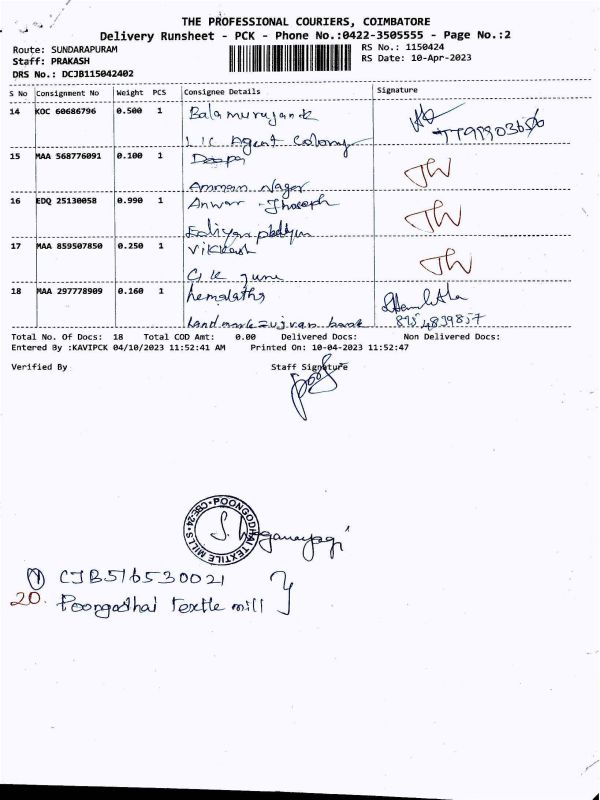 THE PROFESSIONAL COURIERS, COIMBATORE
Delivery Runsheet - PCK - Phone No.:0422-3505555 - Page No.:2
Route: SUNDARAPURAM RS No.: 1150424
Staff: PRAKASH RS Date: 10-Apr-2023
DRS No.: DCJB115042402
S No Consignment No Weight PCS Consignee Details Signature
14 KOC 60686796 0.500 1 Balamurugan
LIC Agent Colony
15 MAA 568776091 0.100 1 Deepa
Amman Nagar
16 EDQ 25130058 0.990 1 Anwar
17 MAA 859507850 0.250 1
G.K
18 MAA 297778909 0.160 1 hemalatha
Landmark = bank
Total No. Of Docs: 18 Total COD Amt: 0.00 Delivered Docs: Non Delivered Docs:
Entered By :KAVIPCK 04/10/2023 11:52:41 AM Printed On: 10-04-2023 11:52:47
Verified By Staff Signature
POONGODHAI TEXTILE MILLS CBE-24
S. Yoganayagi
CJB516530021
20. Poongothai Textle mill